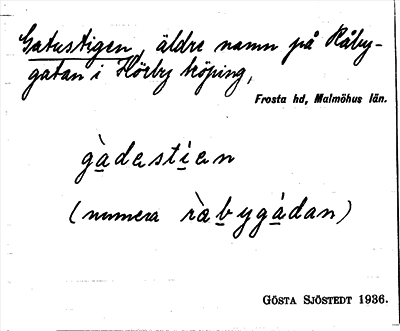 Gatustigen, äldre namn på Råby-
gatan i Hörby köping,
Frosta hd, Malmöhus län.
gàdestìen
(numera ràbygàdan)
GÖSTA SJÖSTEDT 1936.